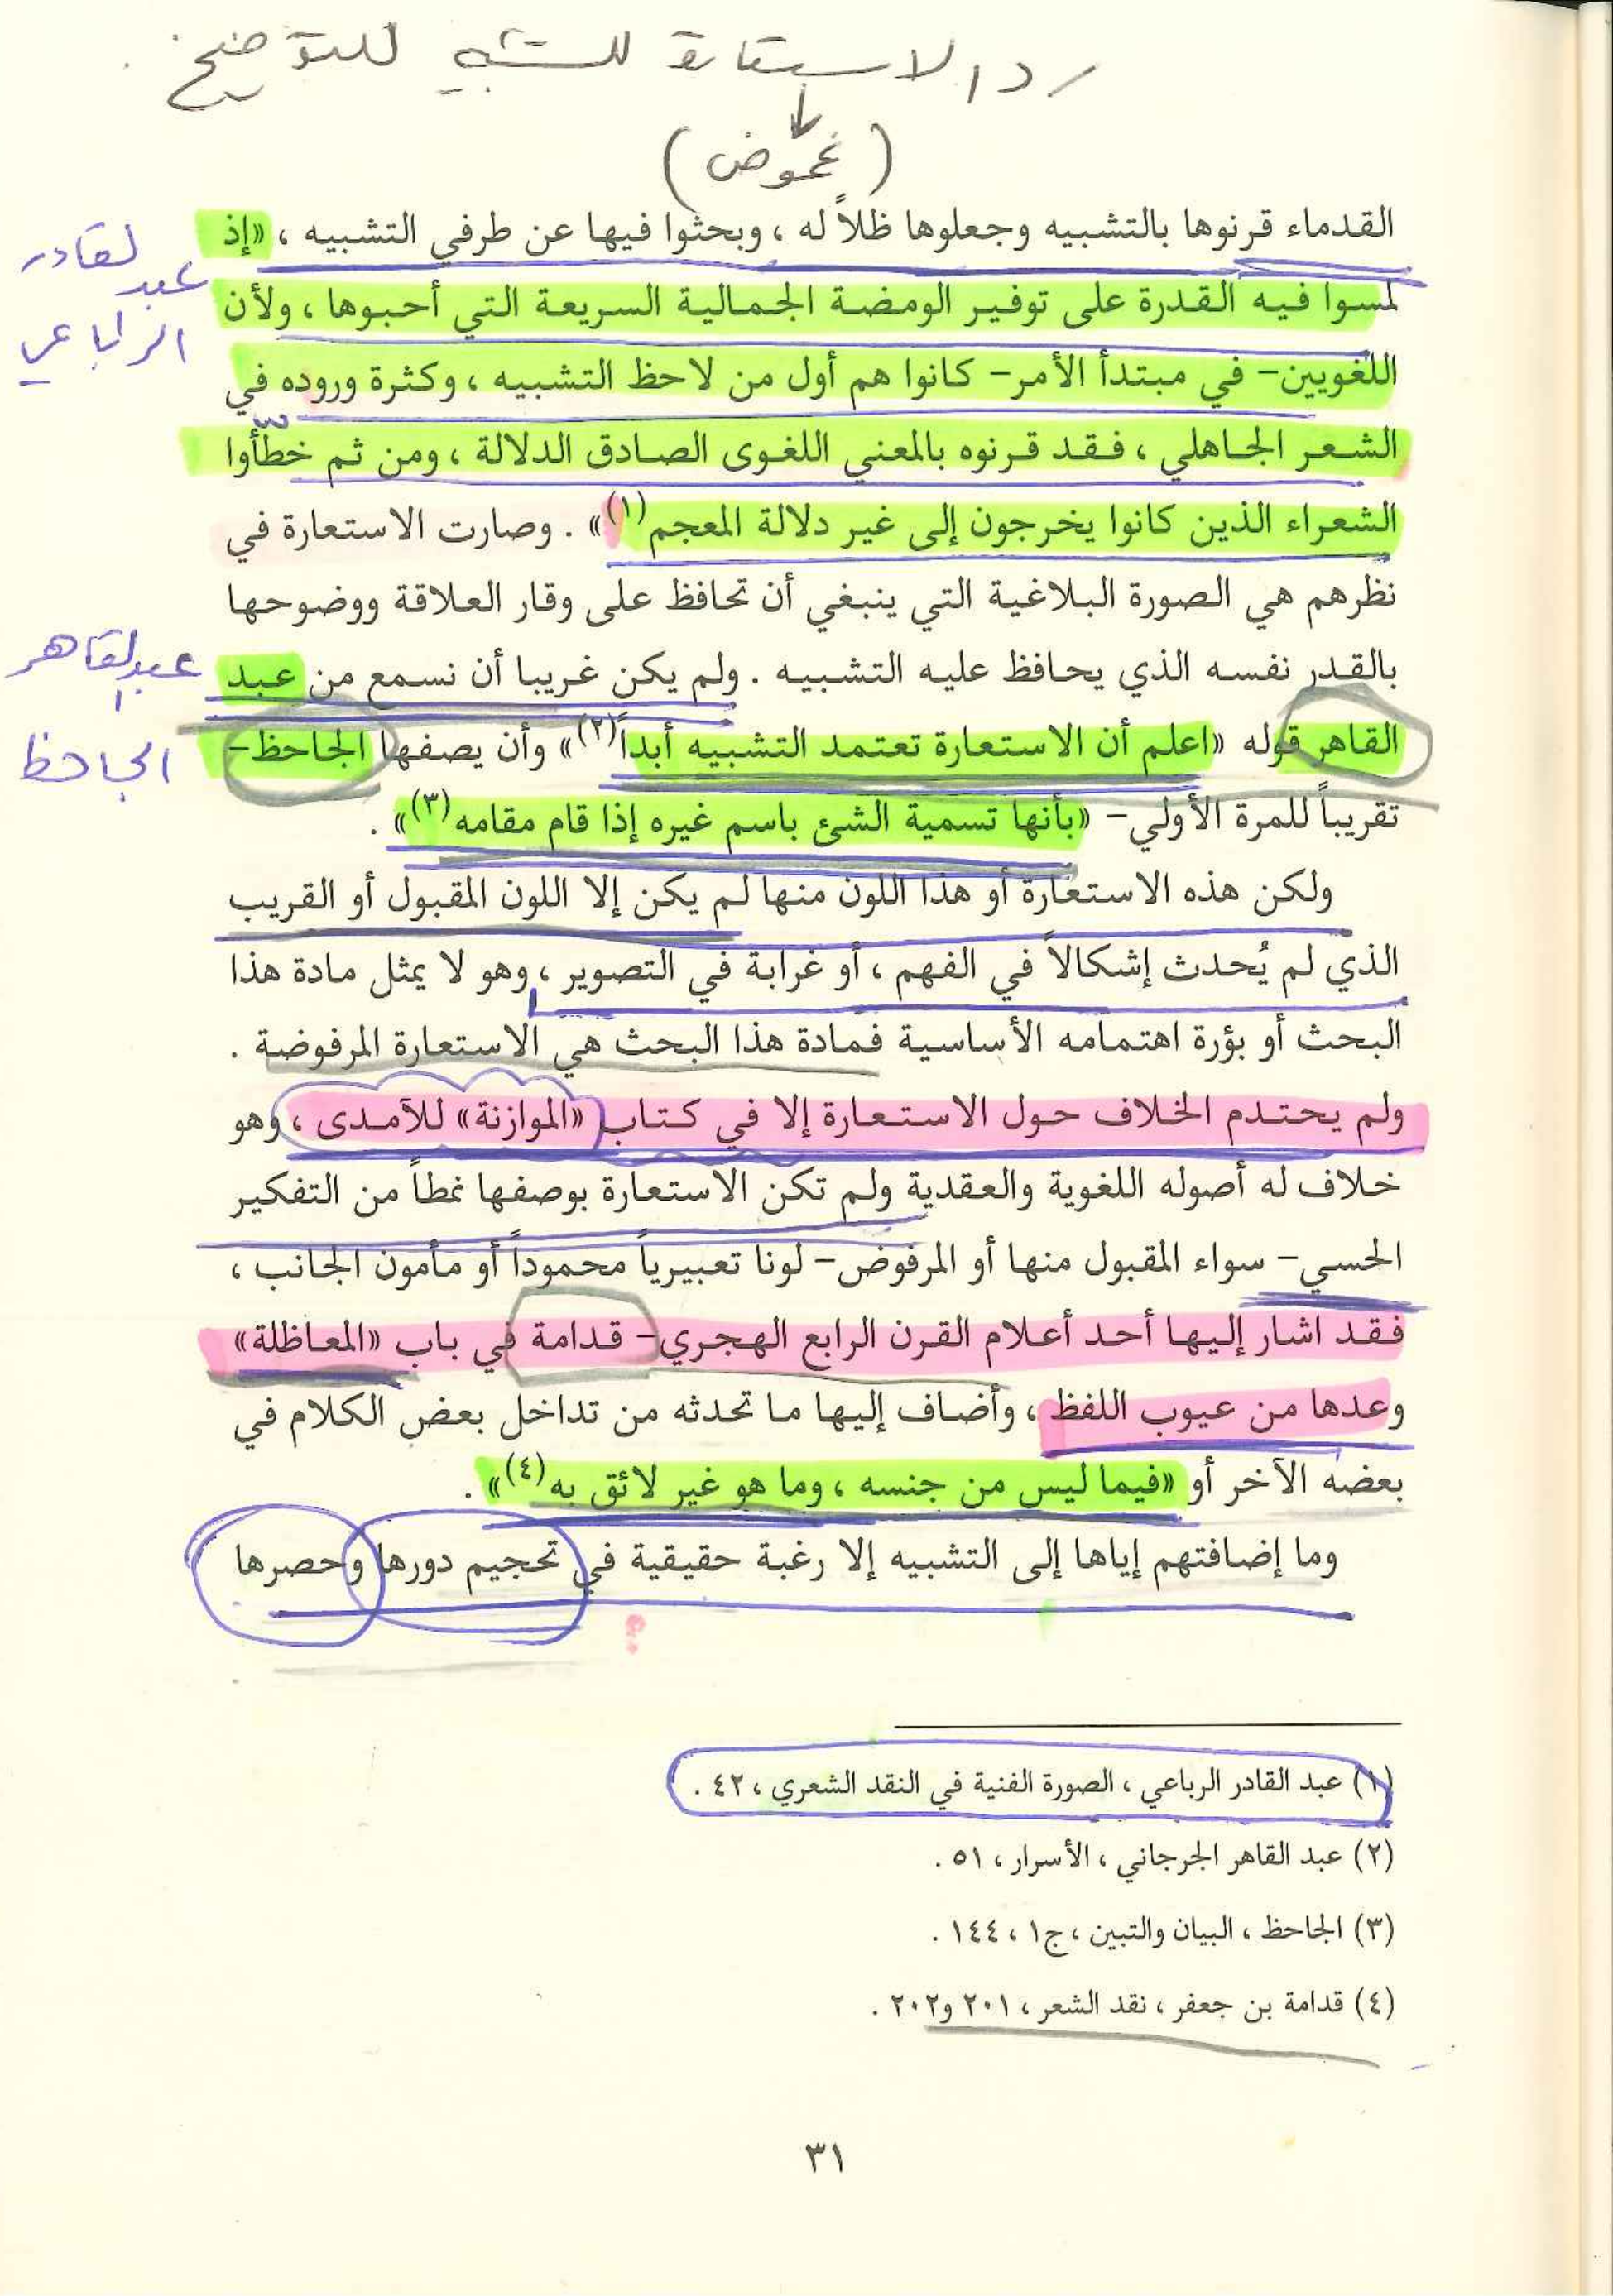 رد الاستعارة للتشبيه للتوضيح .
(غموض)
القدماء قرنوها بالتشبيه وجعلوها ظلاً له ، وبحثوا فيها عن طرفي التشبيه ، «إذ
عبد القادر
الرباعي
لمسوا فيه القدرة على توفير الومضة الجمالية السريعة التي أحبوها ، ولأن
اللغويين- في مبتدأ الأمر- كانوا هم أول من لاحظ التشبيه ، وكثرة وروده في
الشعر الجاهلي ، فقد قرنوه بالمعني اللغوى الصادق الدلالة ، ومن ثم خطّأوا
الشعراء الذين كانوا يخرجون إلى غير دلالة المعجم(١)» . وصارت الاستعارة في
نظرهم هي الصورة البلاغية التي ينبغي أن تحافظ على وقار العلاقة ووضوحها
بالقدر نفسه الذي يحافظ عليه التشبيه . ولم يكن غريبا أن نسمع من عبد
عبد القاهر
القاهر قوله «اعلم أن الاستعارة تعتمد التشبيه أبداً(٢)» وأن يصفها الجاحظ-
الجاحظ
تقريباً للمرة الأولي- «بأنها تسمية الشئ باسم غيره إذا قام مقامه(٣)» .
ولكن هذه الاستعارة أو هذا اللون منها لم يكن إلا اللون المقبول أو القريب
الذي لم يُحدث إشكالاً في الفهم ، أو غرابة في التصوير ، وهو لا يمثل مادة هذا
البحث أو بؤرة اهتمامه الأساسية فمادة هذا البحث هي الاستعارة المرفوضة .
ولم يحتدم الخلاف حول الاستعارة إلا في كتاب «الموازنة» للآمدى ، وهو
خلاف له أصوله اللغوية والعقدية ولم تكن الاستعارة بوصفها نمطاً من التفكير
الحسي- سواء المقبول منها أو المرفوض- لونا تعبيرياً محموداً أو مأمون الجانب ،
فقد اشار إليها أحد أعلام القرن الرابع الهجري- قدامة في باب «المعاظلة»
وعدها من عيوب اللفظ ، وأضاف إليها ما تحدثه من تداخل بعض الكلام في
بعضه الآخر أو «فيما ليس من جنسه ، وما هو غير لائق به(٤)» .
وما إضافتهم إياها إلى التشبيه إلا رغبة حقيقية في تحجيم دورها وحصرها
(١) عبد القادر الرباعي ، الصورة الفنية في النقد الشعري ، ٤٢ .
(٢) عبد القاهر الجرجاني ، الأسرار ، ٥١ .
(٣) الجاحظ ، البيان والتبين ، ج١ ، ١٤٤ .
(٤) قدامة بن جعفر ، نقد الشعر ، ٢٠١ و٢٠٢ .
٣١